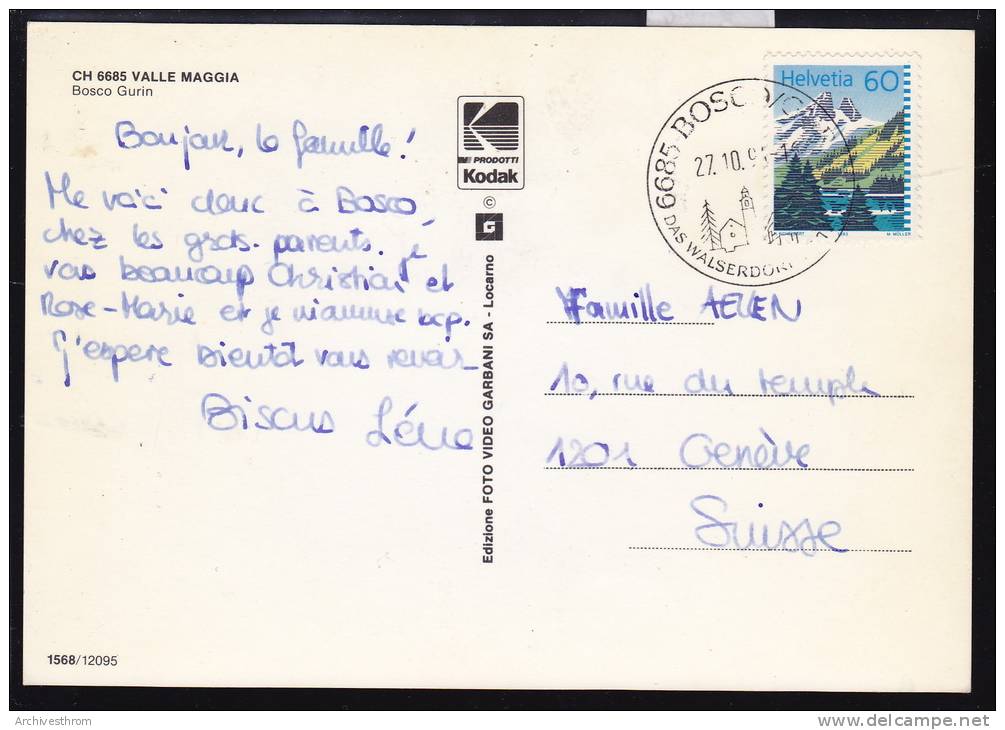 CH 6685 VALLE MAGGIA
Bosco Gurin
Bonjour, la famille!
Me voici donc à Bosco,
chez les grds-parents. Je
vois beaucoup Christian et
Rose-Marie et je m'amuse bcp.
J'espère bientôt vous revoir
Bisous Léna
PRODOTTI
Kodak
©
G
Edizione FOTO VIDEO GARBANI SA - Locarno
Helvetia 60
M. MÜLLER
6685 BOSCO/G
27.10.9
DAS WALSERDORF
Famille AELLEN
10, rue du temple
1201 Genève
Suisse
1568/12095
Archivesthrom
delcampe.net